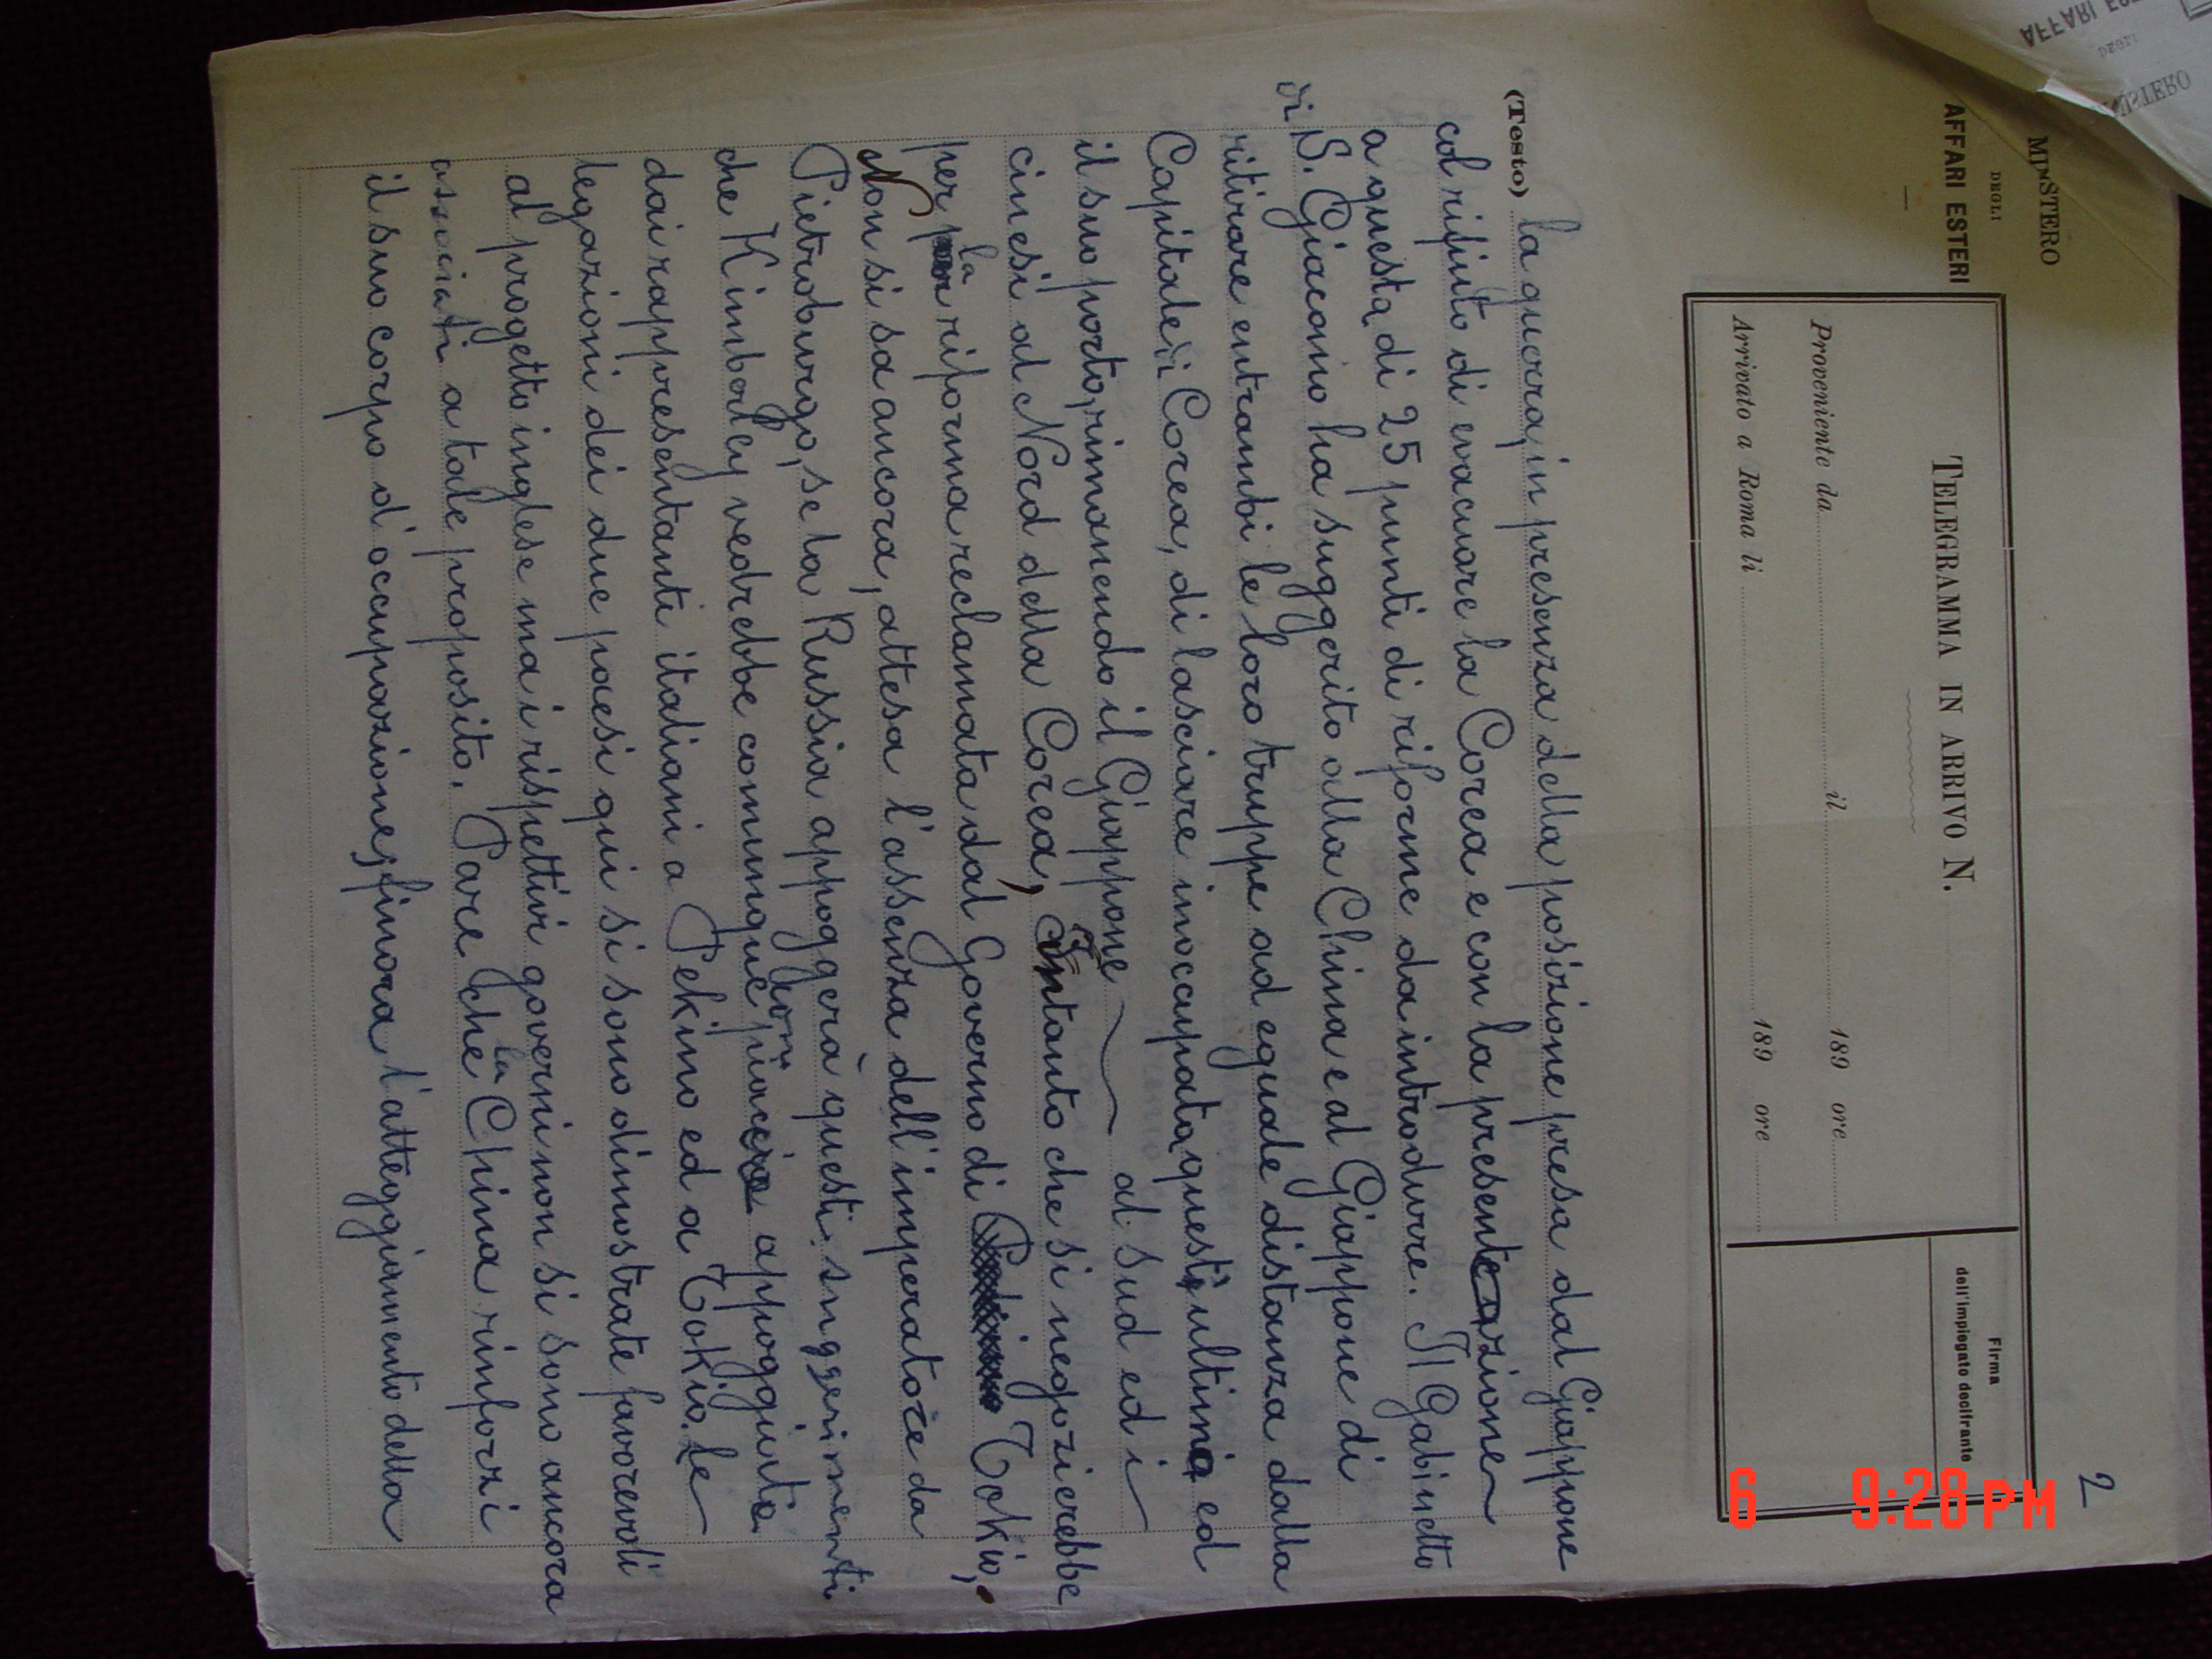 2
MINISTERO
DEGLI
AFFARI ESTERI
TELEGRAMMA IN ARRIVO N.
Proveniente da il 189 ore
Arrivato a Roma li 189 ore
Firma
dell'impiegato decifrante
(Testo) la guerra, in presenza della posizione presa dal Giappone
col rifiuto di evacuare la Corea e con la presentazione
a questa di 25 punti di riforme da introdurre. Il Gabinetto
di S. Giacomo ha suggerito alla China e al Giappone di
ritirare entrambi le loro truppe ad eguale distanza dalla
Capitale di Corea, di lasciare inocupata quest'ultima ed
il suo porto, rimanendo il Giappone al sud ed i
cinesi al Nord della Corea, Intanto che si negozierebbe
per la riforma reclamata dal Governo di Tokio,
Non si sa ancora, attesa l'assenza dell'imperatore da
Pietroburgo, se la Russia appoggerà questi suggerimenti
che Kimberley vedrebbe comunque con piacere appoggiato
dai rappresentanti italiani a Pekino ed a Tokio. Le
legazioni dei due paesi qui si sono dimostrate favorevoli
al progetto inglese ma i rispettivi governi non si sono ancora
associati a tale proposito. Pare che la China rinforzi
il suo corpo d'occupazione; finora l'atteggiamento della
MINISTERO
DEGLI
AFFARI
6 9:28 PM